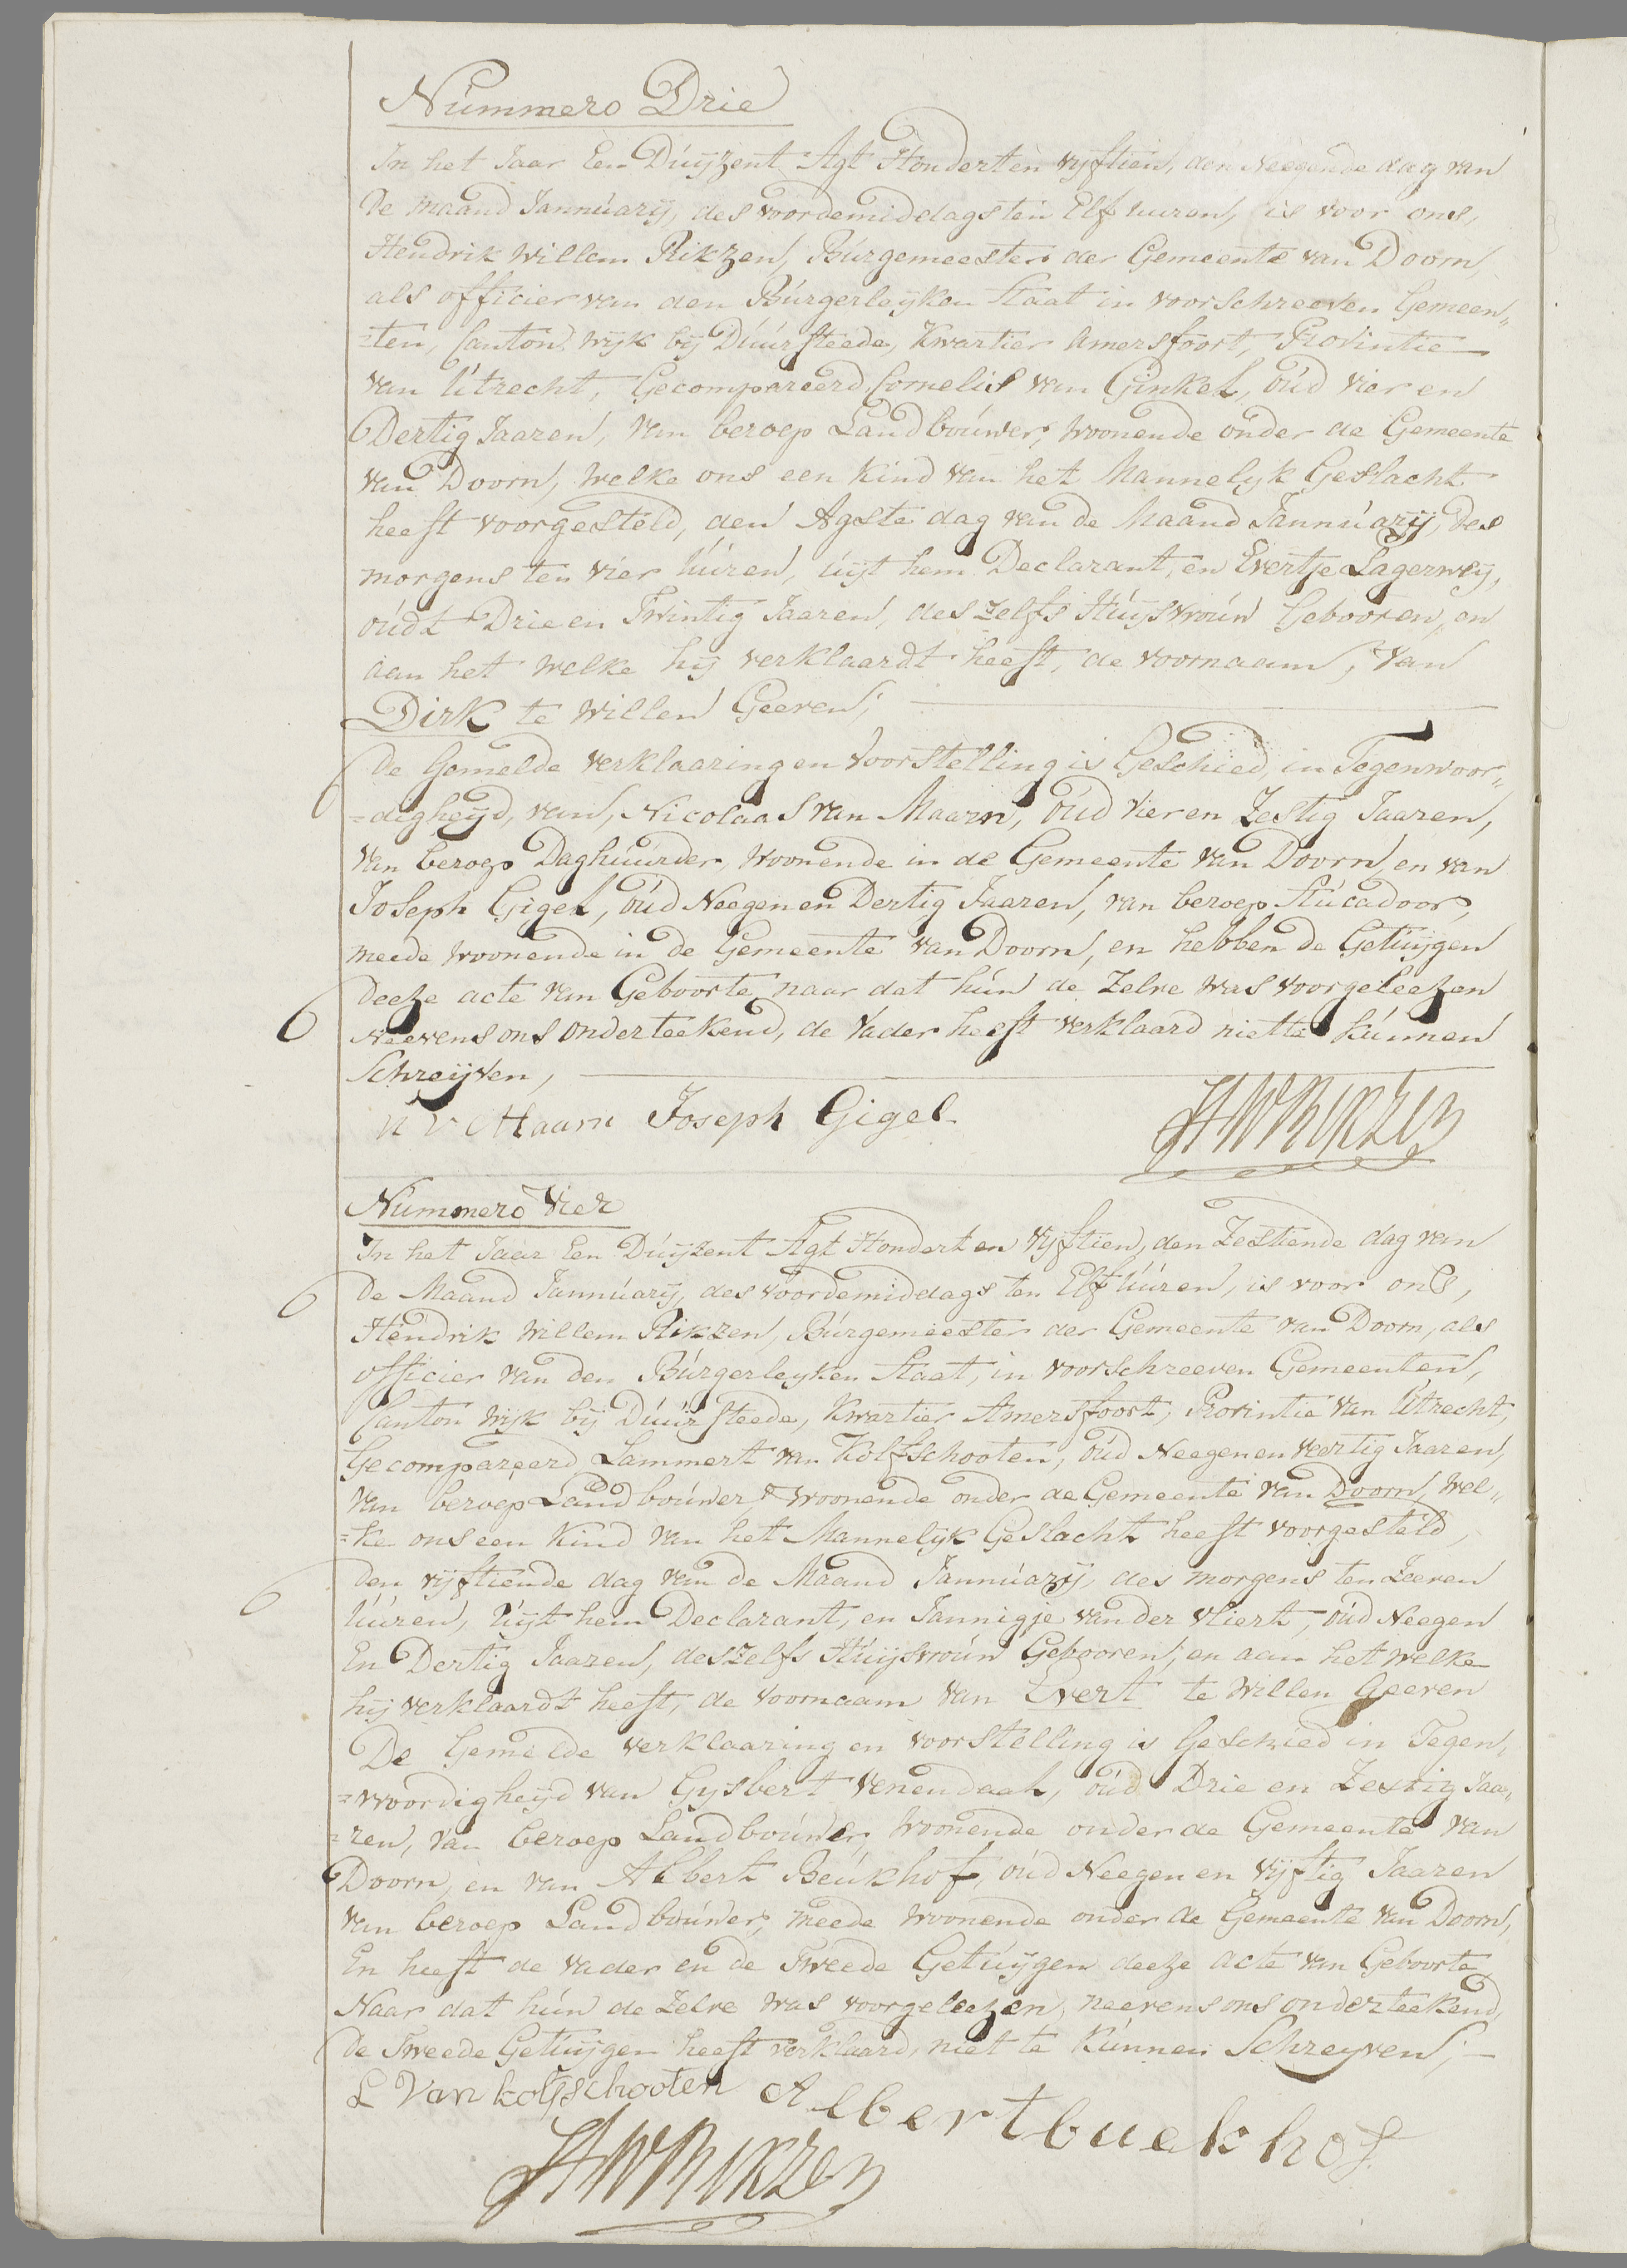 Nummero Drie
In het Jaar Een Duijzent Agt Hondert en vyftien, den Neegende dag van
De maand Jannuarij, des voordemiddags ten Elf uuren, is voor ons,
Hendrik Willem Rikzen, Burgemeester der Gemeente van Doorn,
als officier van den Burgerleijken Staat in voorschreeven Gemeen„
=ten, Canton Wijk bij Duursteede, Kwartier Amersfoort, Provintie
van Utrecht, Gecompareerd Cornelis van Ginkel, oud vier en
Dertig Jaaren, van beroep Landbouwer, woonende onder de Gemeente
van Doorn, welke ons een kind van het Mannelyk Geslacht
heeft voorgesteld, den Agste dag van de Maand Jannuarij, des
morgens ten vier uuren, uijt hem Declarant, en Evertje Lagerweij,
oudt Drie en Twintig Jaaren, des zelfs Huijsvrouw Gebooren, en
aan het welke hij verklaardt heeft, de voornaam, van
Dirk te willen Geeven;
De Gemelde verklaaring en voorstelling is Geschied, in Tegenwoor„
=digheijd, van, Nicolaas van Maarn, oud vier en Zestig Jaaren,
van beroep Daghuurder, woonende in de Gemeente van Doorn, en van
Joseph Gigel, oud Neegen en Dertig Jaaren, van beroep Stucadoor,
meede woonende in de Gemeente van Doorn, en hebben de Getuijgen
deeze acte van Geboorte naar dat hun de zelve was voorgeleezen
Neevens ons onderteekend, de Vader heeft verklaard niet te kunnen
Schreijven,
n v Maarn Joseph Gigel HWRikzen
Nummero Vier
In het Jaar Een Duijzent Agt Hondert en Vyftien, den Zestiende dag van
De Maand Jannuarij, des voordemiddags ten Elf uuren, is voor ons,
Hendrik Willem Rikzen, Burgemeester der Gemeente van Doorn, als
officier van den Burgerleyken Staat, in voorschreeven Gemeenten,
Canton Wijk bij Duursteede, Kwartier Amersfoort, Provintie van Utrecht,
Gecompareerd Lammert van Kolfschooten, oud Neegen en veertig Jaaren,
van beroep Landbouwer, woonende onder de Gemeente van Doorn, wel„
=ke ons een Kind van het Mannelyk Geslacht heeft voorgesteld,
den vijftiende dag van de Maand Jannuarij, des morgens ten Zeeven
uuren, uijt hem Declarant, en Jannigje van der Vliert, oud Neegen
En Dertig Jaaren, deszelfs Huijsvrouw Gebooren, en aan het welke
hij verklaardt heeft, de voornaam van Evert te willen Geeven
De Gemelde verklaaring en voorstelling is Geschied in Tegen„
=woordigheijd van Gysbert Venendaal, oud Drie en Zestig Jaa„
=ren, van beroep Landbouwer, woonende onder de Gemeente van
Doorn, en van Albert Beukhof, oud Neegen en Vijftig Jaaren
van beroep Landbouwer, meede woonende onder de Gemeente van Doorn,
En heeft de vader en de Tweede Getuijgen deeze acte van Geboorte
Naar dat hun de zelve was voorgeleezen, neevens ons onderteekend,
De Tweede Getuijgen heeft verklaard, niet te kunnen Schreyven;
L Van kolfschooten Albert buekhof
HWRikzen